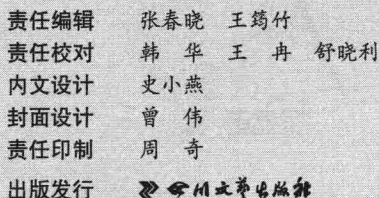 责任编辑 张春晓 王筠竹
责任校对 韩 华 王 冉 舒晓利
内文设计 史小燕
封面设计 曾 伟
责任印制 周 奇
出版发行 四川文艺出版社